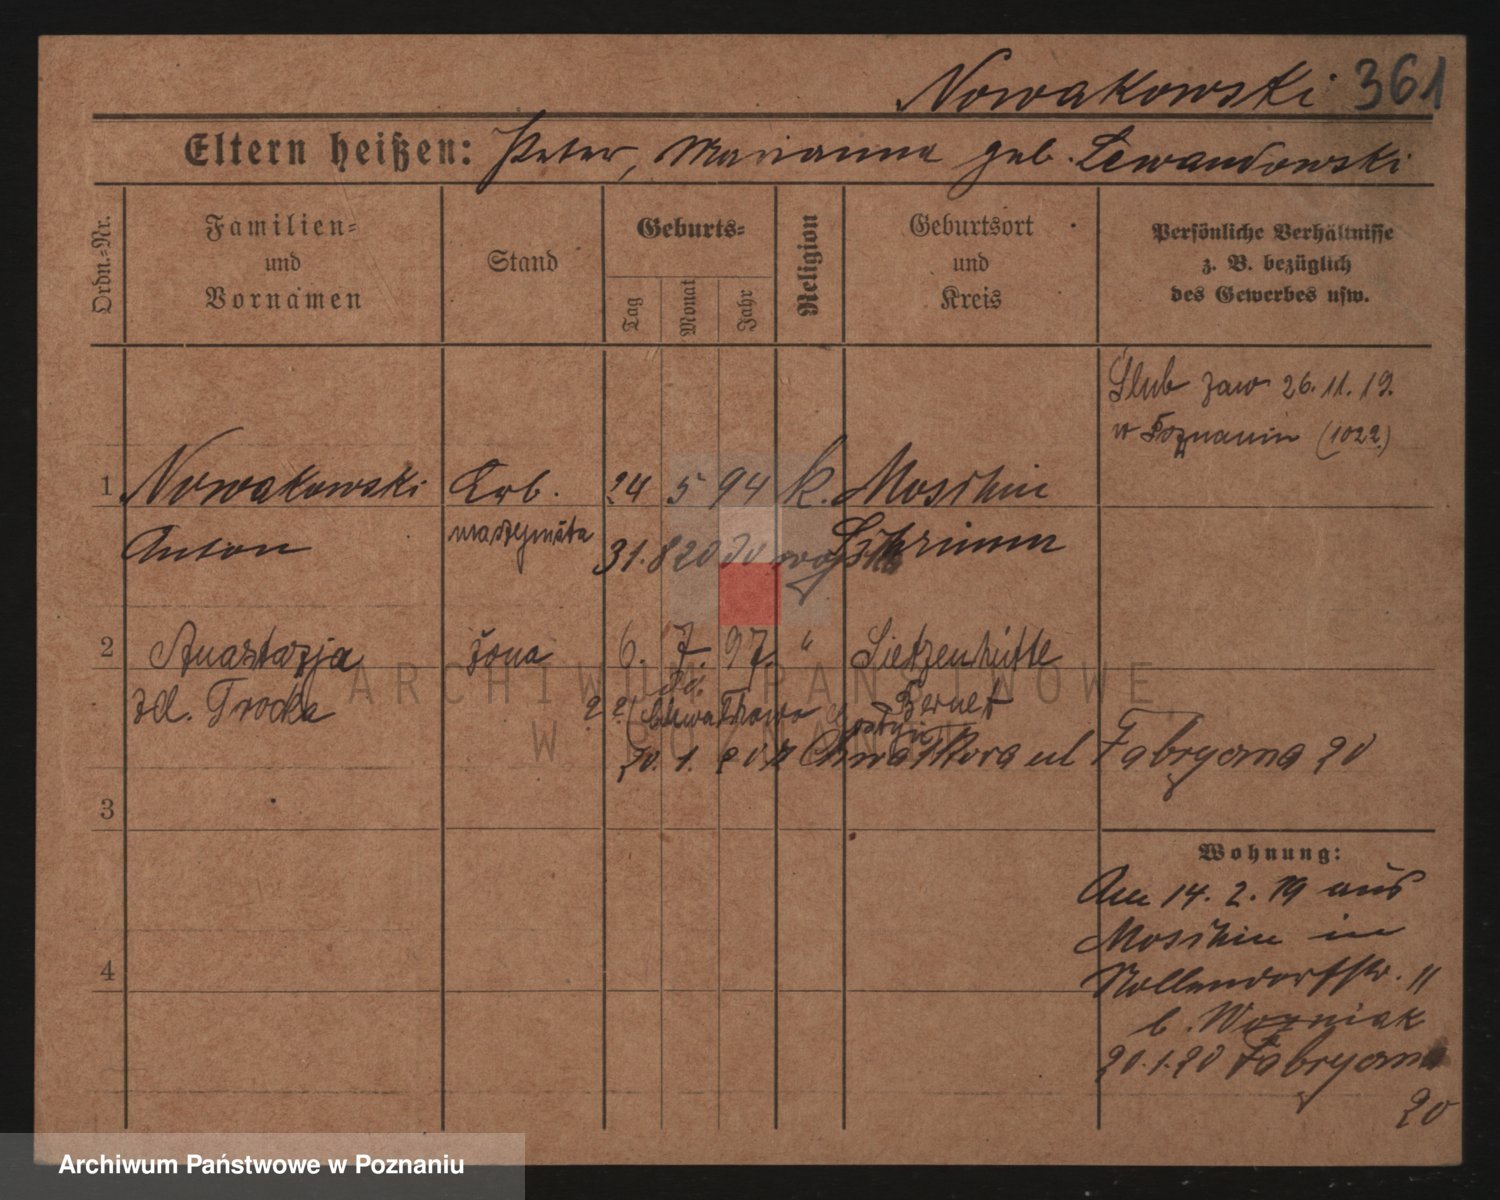 Nowakowski 361
Eltern heißen: Peter, Marianna geb. Lewandowski
Ordn.-Nr.
Familien-
und
Vornamen
Stand
Geburts-
Tag
Monat
Jahr
Religion
Geburtsort
und
Kreis
Persönliche Verhältnisse
z. B. bezüglich
des Gewerbes usw.
Ślub zaw 26.11.19.
w Poznaniu (1022)
1 Nowakowski Arb. 24 5 94 k. Moschin
Anton
31.8 20 do wojska
Schrimm
2 Anastazja żona 6. 7. 97. " Lietzenhütte
Trocka
20. 1. 20 Chwałkowa ul Fabryczna 20
3
4
Wohnung:
Am 14. 2. 19 aus
Moschin in
Nollendorfstr. 11
b. Wozniak
20.1.20 Fabryczna
20
ARCHIWUM PAŃSTWOWE
W POZNANIU
Archiwum Państwowe w Poznaniu